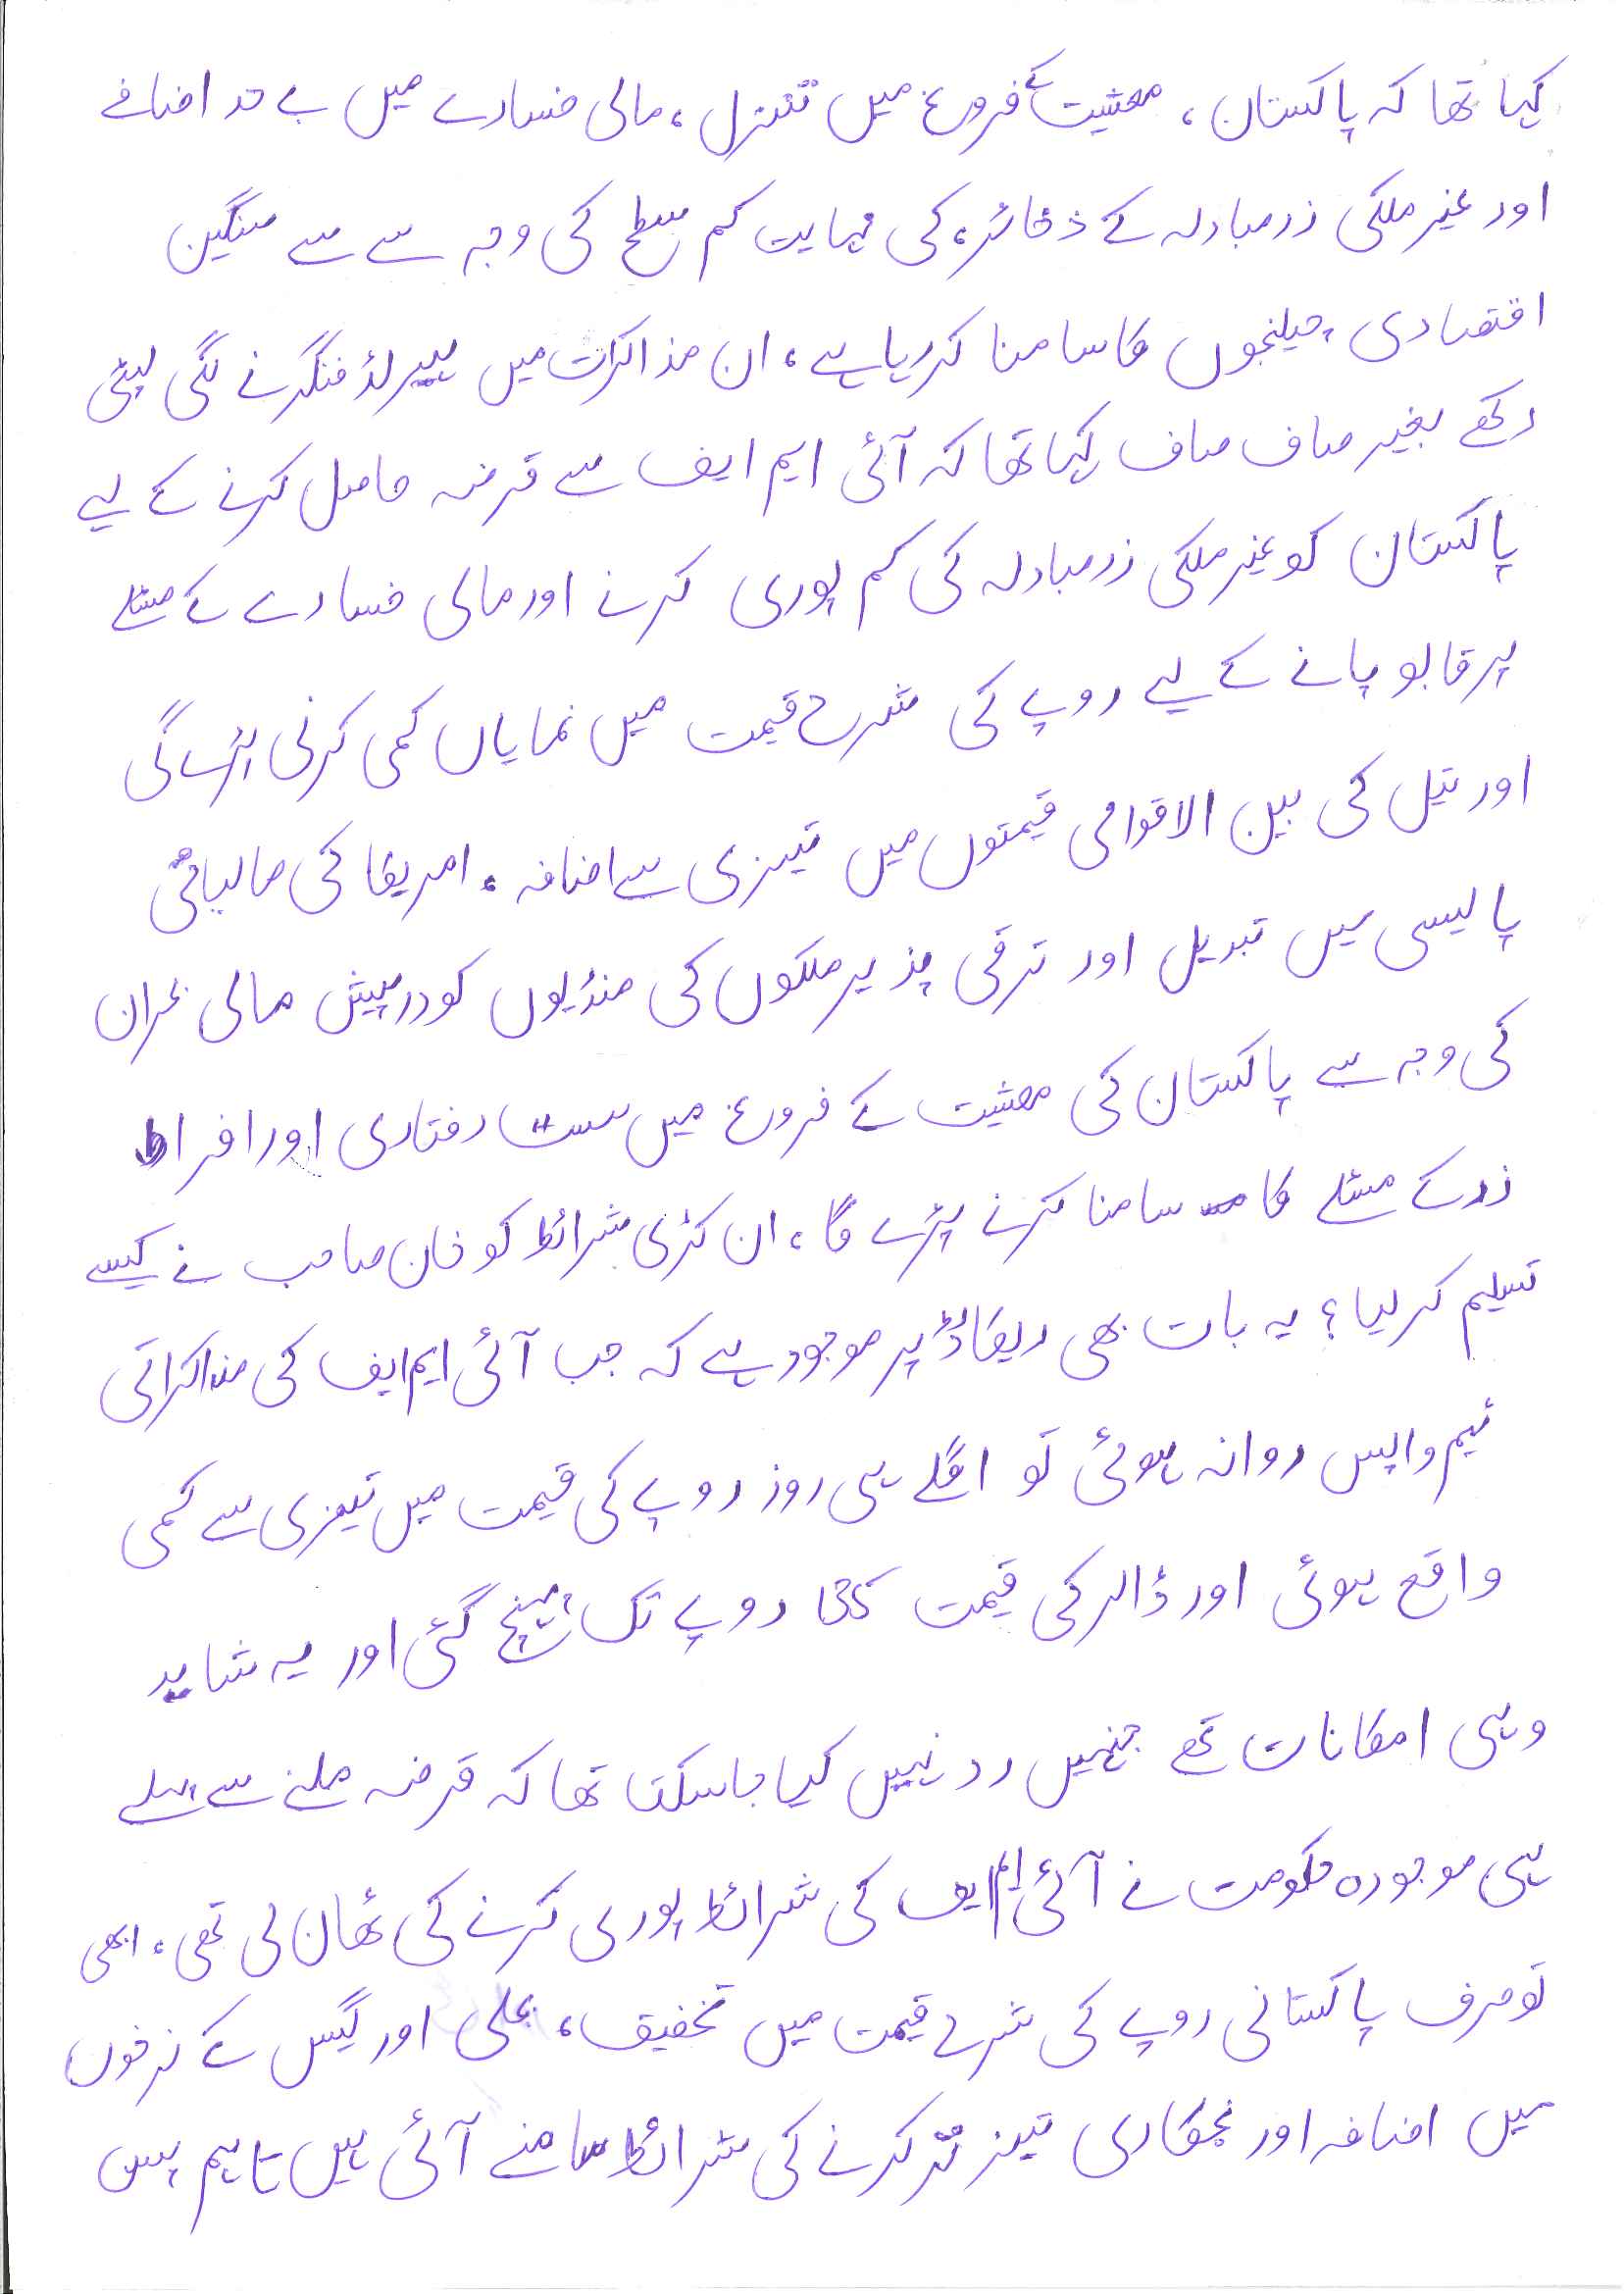 کہا تھا کہ پاکستان، معشیت کے فروغ میں تنزل، مالی خسارے میں بے حد اضافے
اور غیر ملکی زرمبادلہ کے ذخائر، کی نہایت کم سطح کی وجہ سے سے سنگین
اقتصادی چیلنجوں کا سامنا کر رہا ہے، ان مذاکرت میں ہیرلڈ فنگر نے لگی لپٹی
رکھے بغیر صاف صاف کہا تھا کہ آئی ایم ایف سے قرضہ حاصل کرنے کے لیے
پاکستان کو غیر ملکی زرمبادلہ کی کم پوری کرنے اور مالی خسارے کے مسئلے
پر قابو پانے کے لیے روپے کی شرح قیمت میں نمایاں کمی کرنی پڑے گی
اور تیل کی بین الاقوامی قیمتوں میں تیزی سے اضافہ، امریکا کی مالیاتی
پالیسی میں تبدیل اور ترقی پذیر ملکوں کی منڈیوں کو درپیش مالی بحران
کی وجہ سے پاکستان کی معشیت کے فروغ میں سست رفتاری اور افراط
زر کے مسئلے کا سامنا کرنے پڑے گا، ان کڑی شرائط کو خان صاحب نے کیسے
تسلیم کر لیا؟ یہ بات بھی ریکارڈ پر موجود ہے کہ جب آئی ایم ایف کی مذاکراتی
ٹیم واپس روانہ ہوئی تو اگلے ہی روز روپے کی قیمت میں تیزی سے کمی
واقع ہوئی اور ڈالر کی قیمت روپے تک پہنچ گئی اور یہ شاید
وہی امکانات تھے جنہیں رد نہیں کیا جاسکتا تھا کہ قرضہ ملنے سے پہلے
ہی موجودہ حکومت نے آئی ایم ایف کی شرائط پوری کرنے کی ٹھان لی تھی، ابھی
تو صرف پاکستانی روپے کی شرح قیمت میں تخفیف، بجلی اور گیس کے نرخوں
میں اضافہ اور نجکاری تیز تر کرنے کی شرائط سامنے آئی ہیں تاہم پس